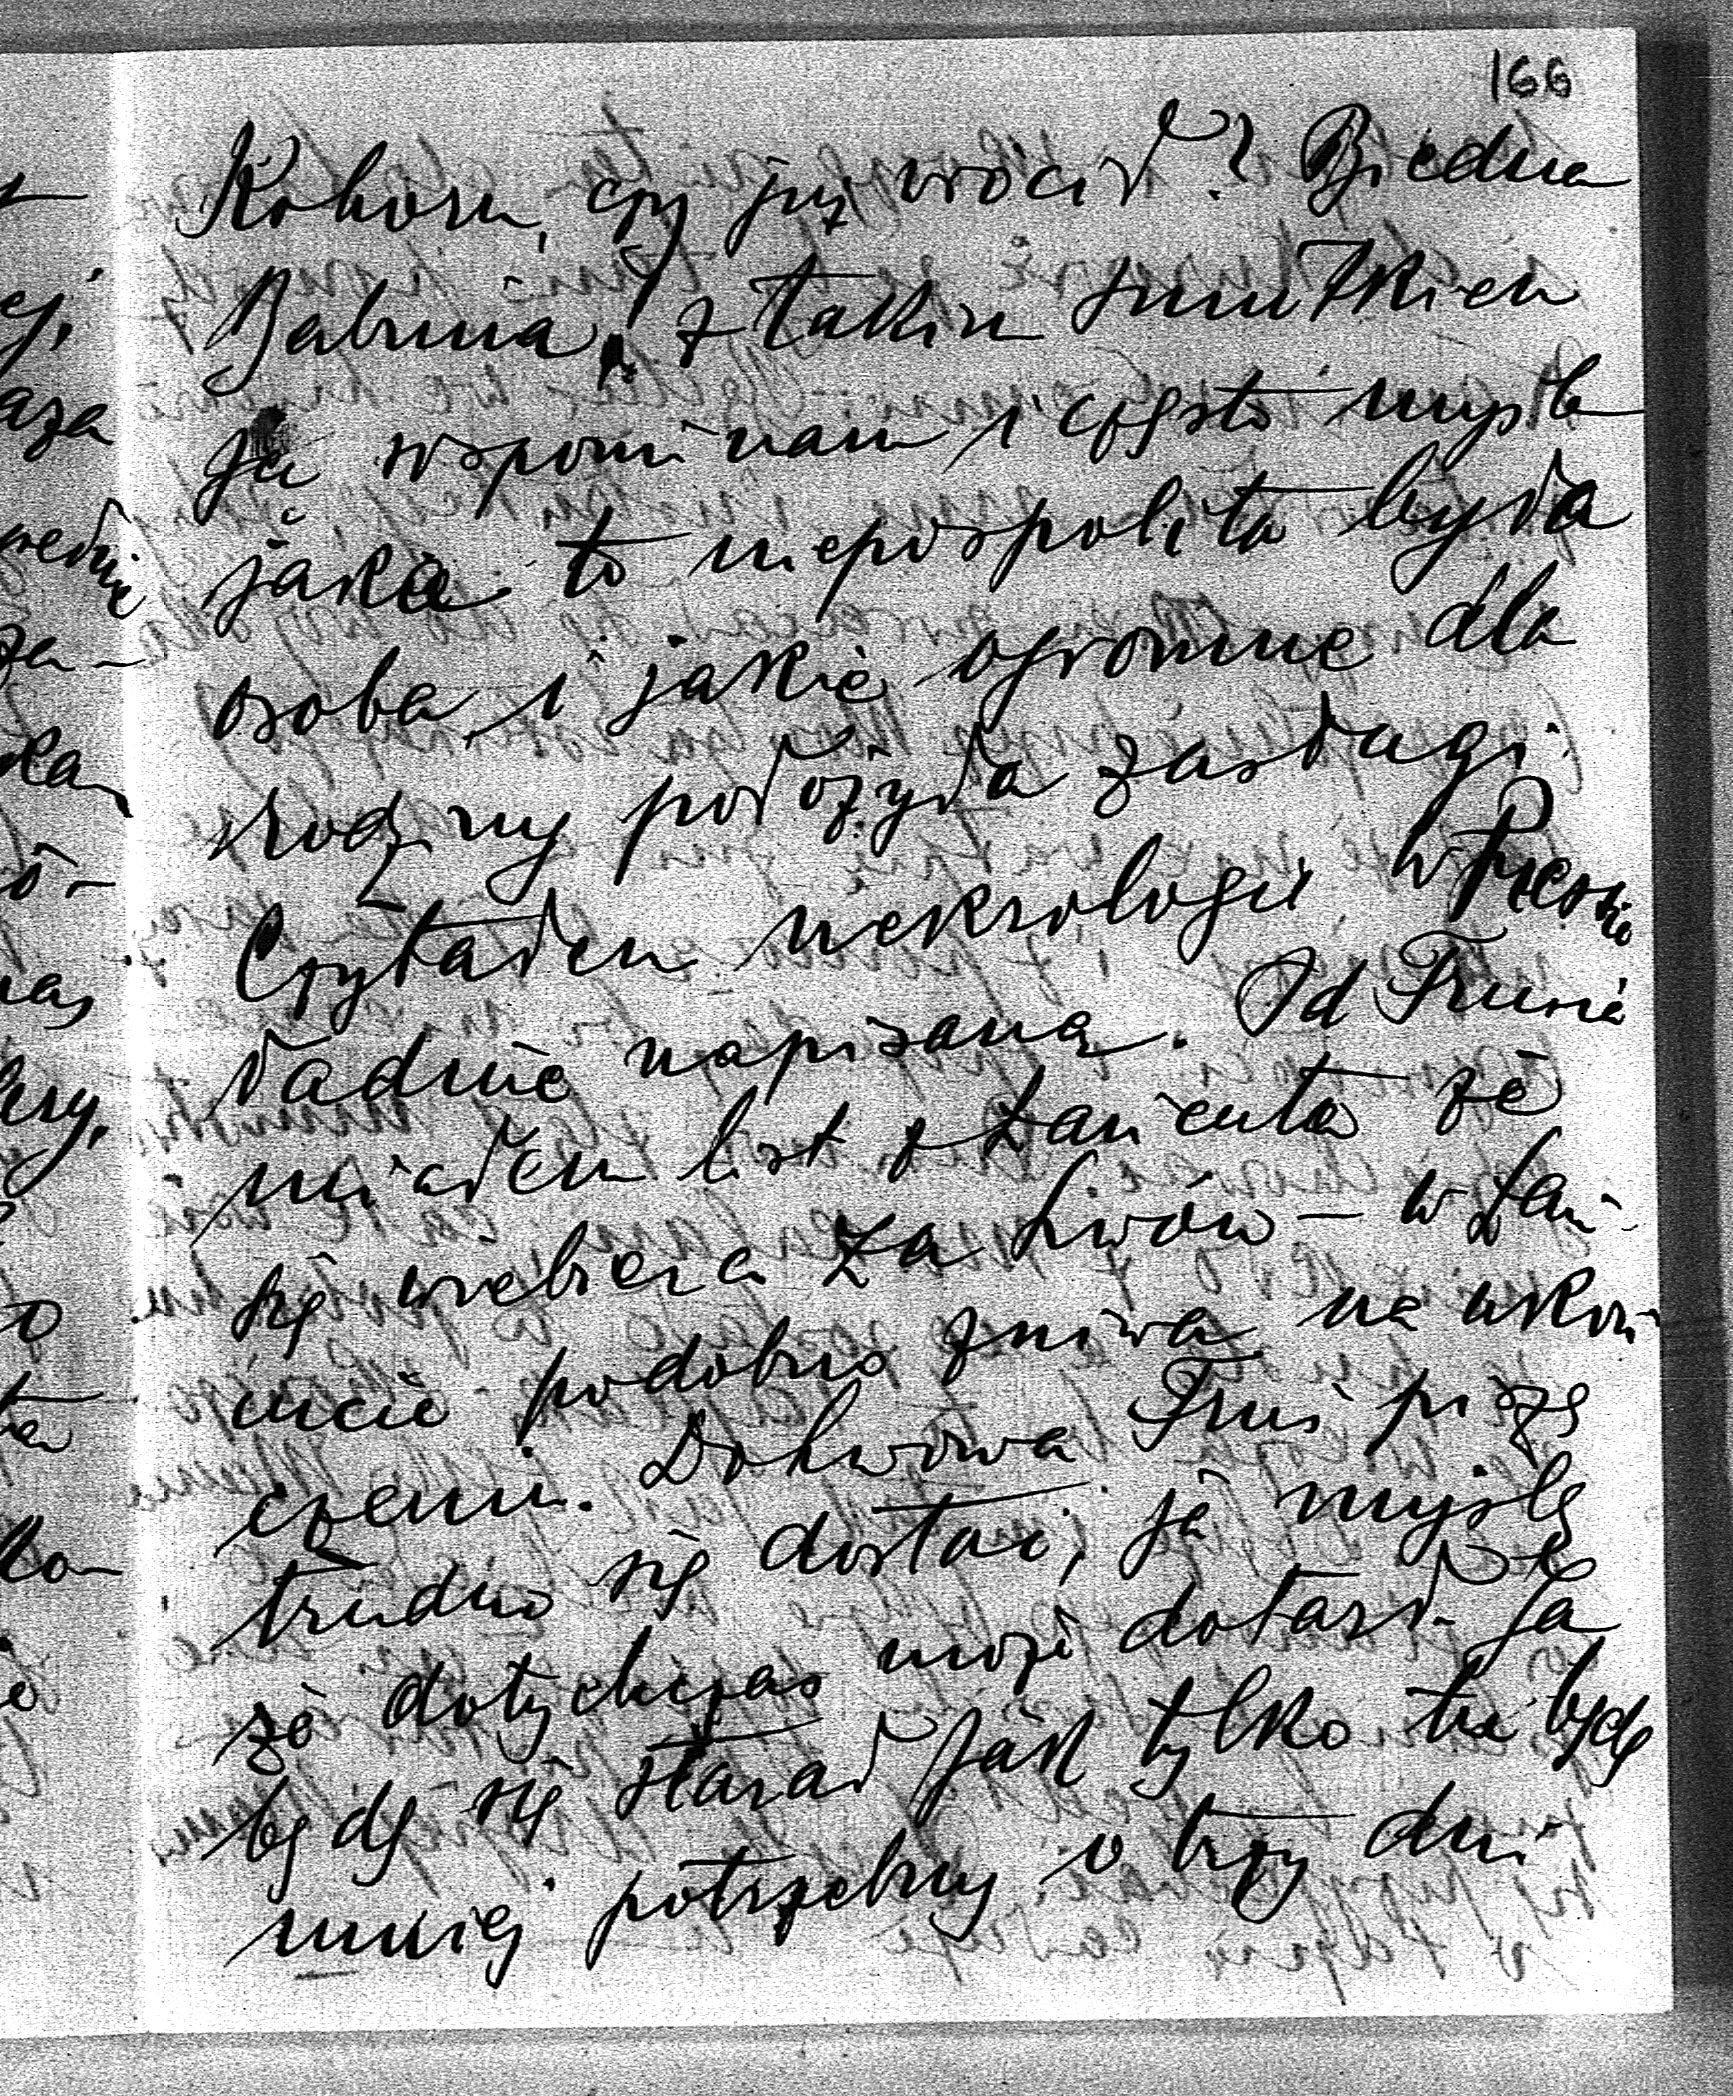 166
czy już wrócił? Biedna
Babunia, z takim smutkiem
ją wspominam i często myślę
jaka to niepospolita była
osoba, i jakie ogromne dla
rodziny położyła zasługi.
Czytałem nekrologię w
ładnie napisaną. Od Trusia
miałem list z Łańcuta że
się wybiera za Lwów – w Łań-
cucie podobno żniwa na ukoń-
czeniu. Do Lwowa Truś pisze
trudno się dostać, ja myślę
że dotychczas może dotarł. Ja
będę się starał jak tylko tu będę
mniej potrzebny o trzy dni